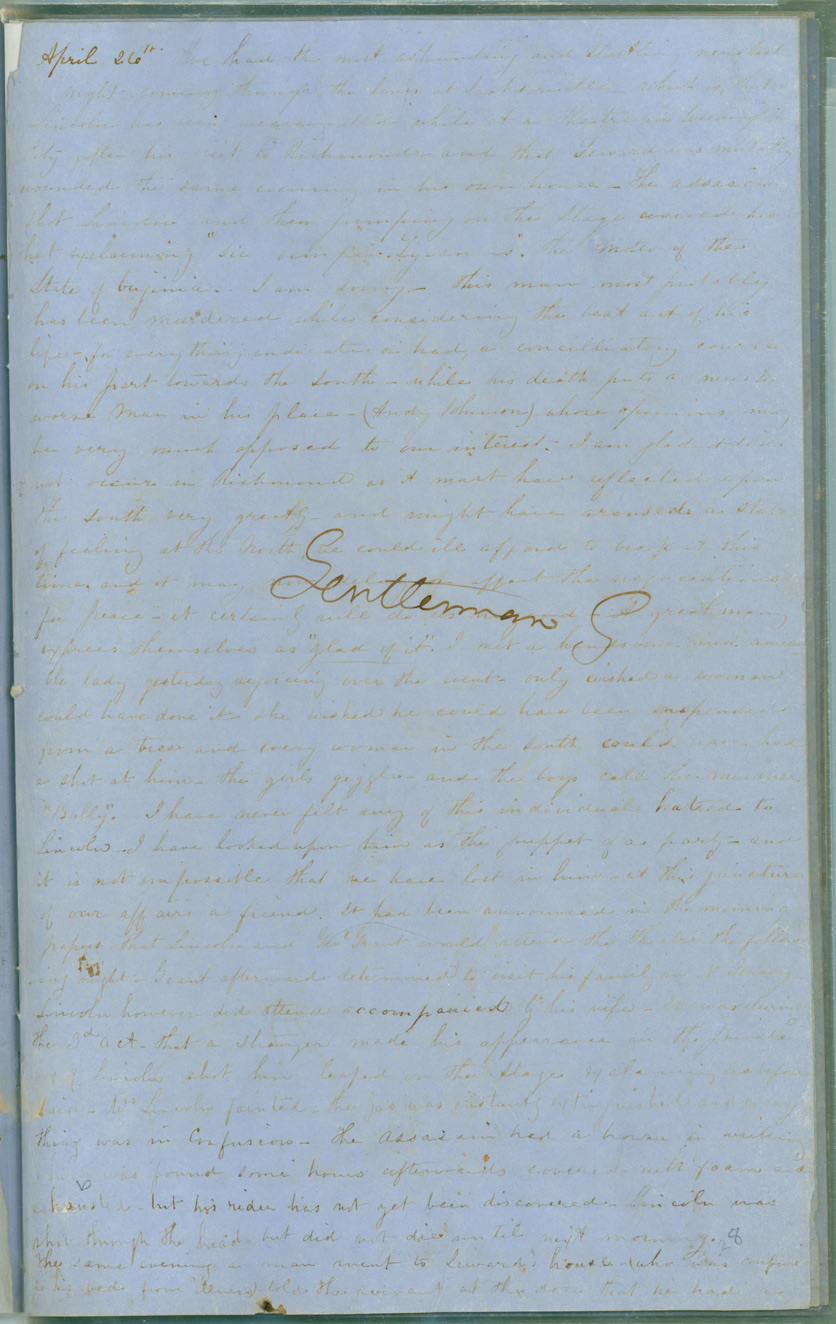 April 26th We had the most astounding and startling news last
night coming through the lines at - which is, that
Lincoln has been assassinated while at a theatre in Washington
City after his visit to Richmond - and that Seward was mortally
wounded the same evening in his own house - The assassin
shot Lincoln and then jumping on the stage waved his
hat exclaiming "Sic semper tyrannis". the motto of the
State of Virginia. - I am sorry - this man most probably
has been murdered while considering the best act of his
life - for everything indicates on had, a conciliatory course
on his part towards the South - while his death puts a much
worse man in his place - (Andy Johnson) whose opinions may
be very much opposed to our interest. I am glad it did
not occur in Richmond as it must have reflected upon
the South very greatly - and might have aroused a state
of feeling at the North we could ill afford to keep at this
time and it may affect the negociations
for peace - it certainly will do us no good A great many
express themselves as "glad of it". I met a handsome and amia
ble lady yesterday rejoicing over the event - only wished a woman
could have done it - she wished he could have been suspended
from a tree and every woman in the South could have had
a shot at him - the girls giggle - and the boys call the murderer
"Bully". I have never felt any of this individual hatred to
Lincoln - I have looked upon him as the puppet of a party - and
it is not impossible that we have lost in him - at this juncture
of our affairs a friend. It had been announced in the morning
papers that Lincoln and Genl Grant would attend the theatre the follow
ing night - Grant afterwards determined to visit his family in N Jersey
Lincoln however did attend accompanied by his wife - It was during
the 3d act - that a stranger made his appearance in the private
box of Lincoln shot him leaped on the stage exclaiming as before
said - Mrs Lincoln fainted - the gas was instantly extinguished and every
thing was in confusion - The assassin had a horse in waiting
which was found some hours afterwards covered with foam and
exhausted - but his rider has not yet been discovered - Lincoln was
shot through the head but did not die until next morning. 8
The same evening a man went to Seward's house (who was confined
to his bed from illness) told the servant at the door that he had
Gentleman G